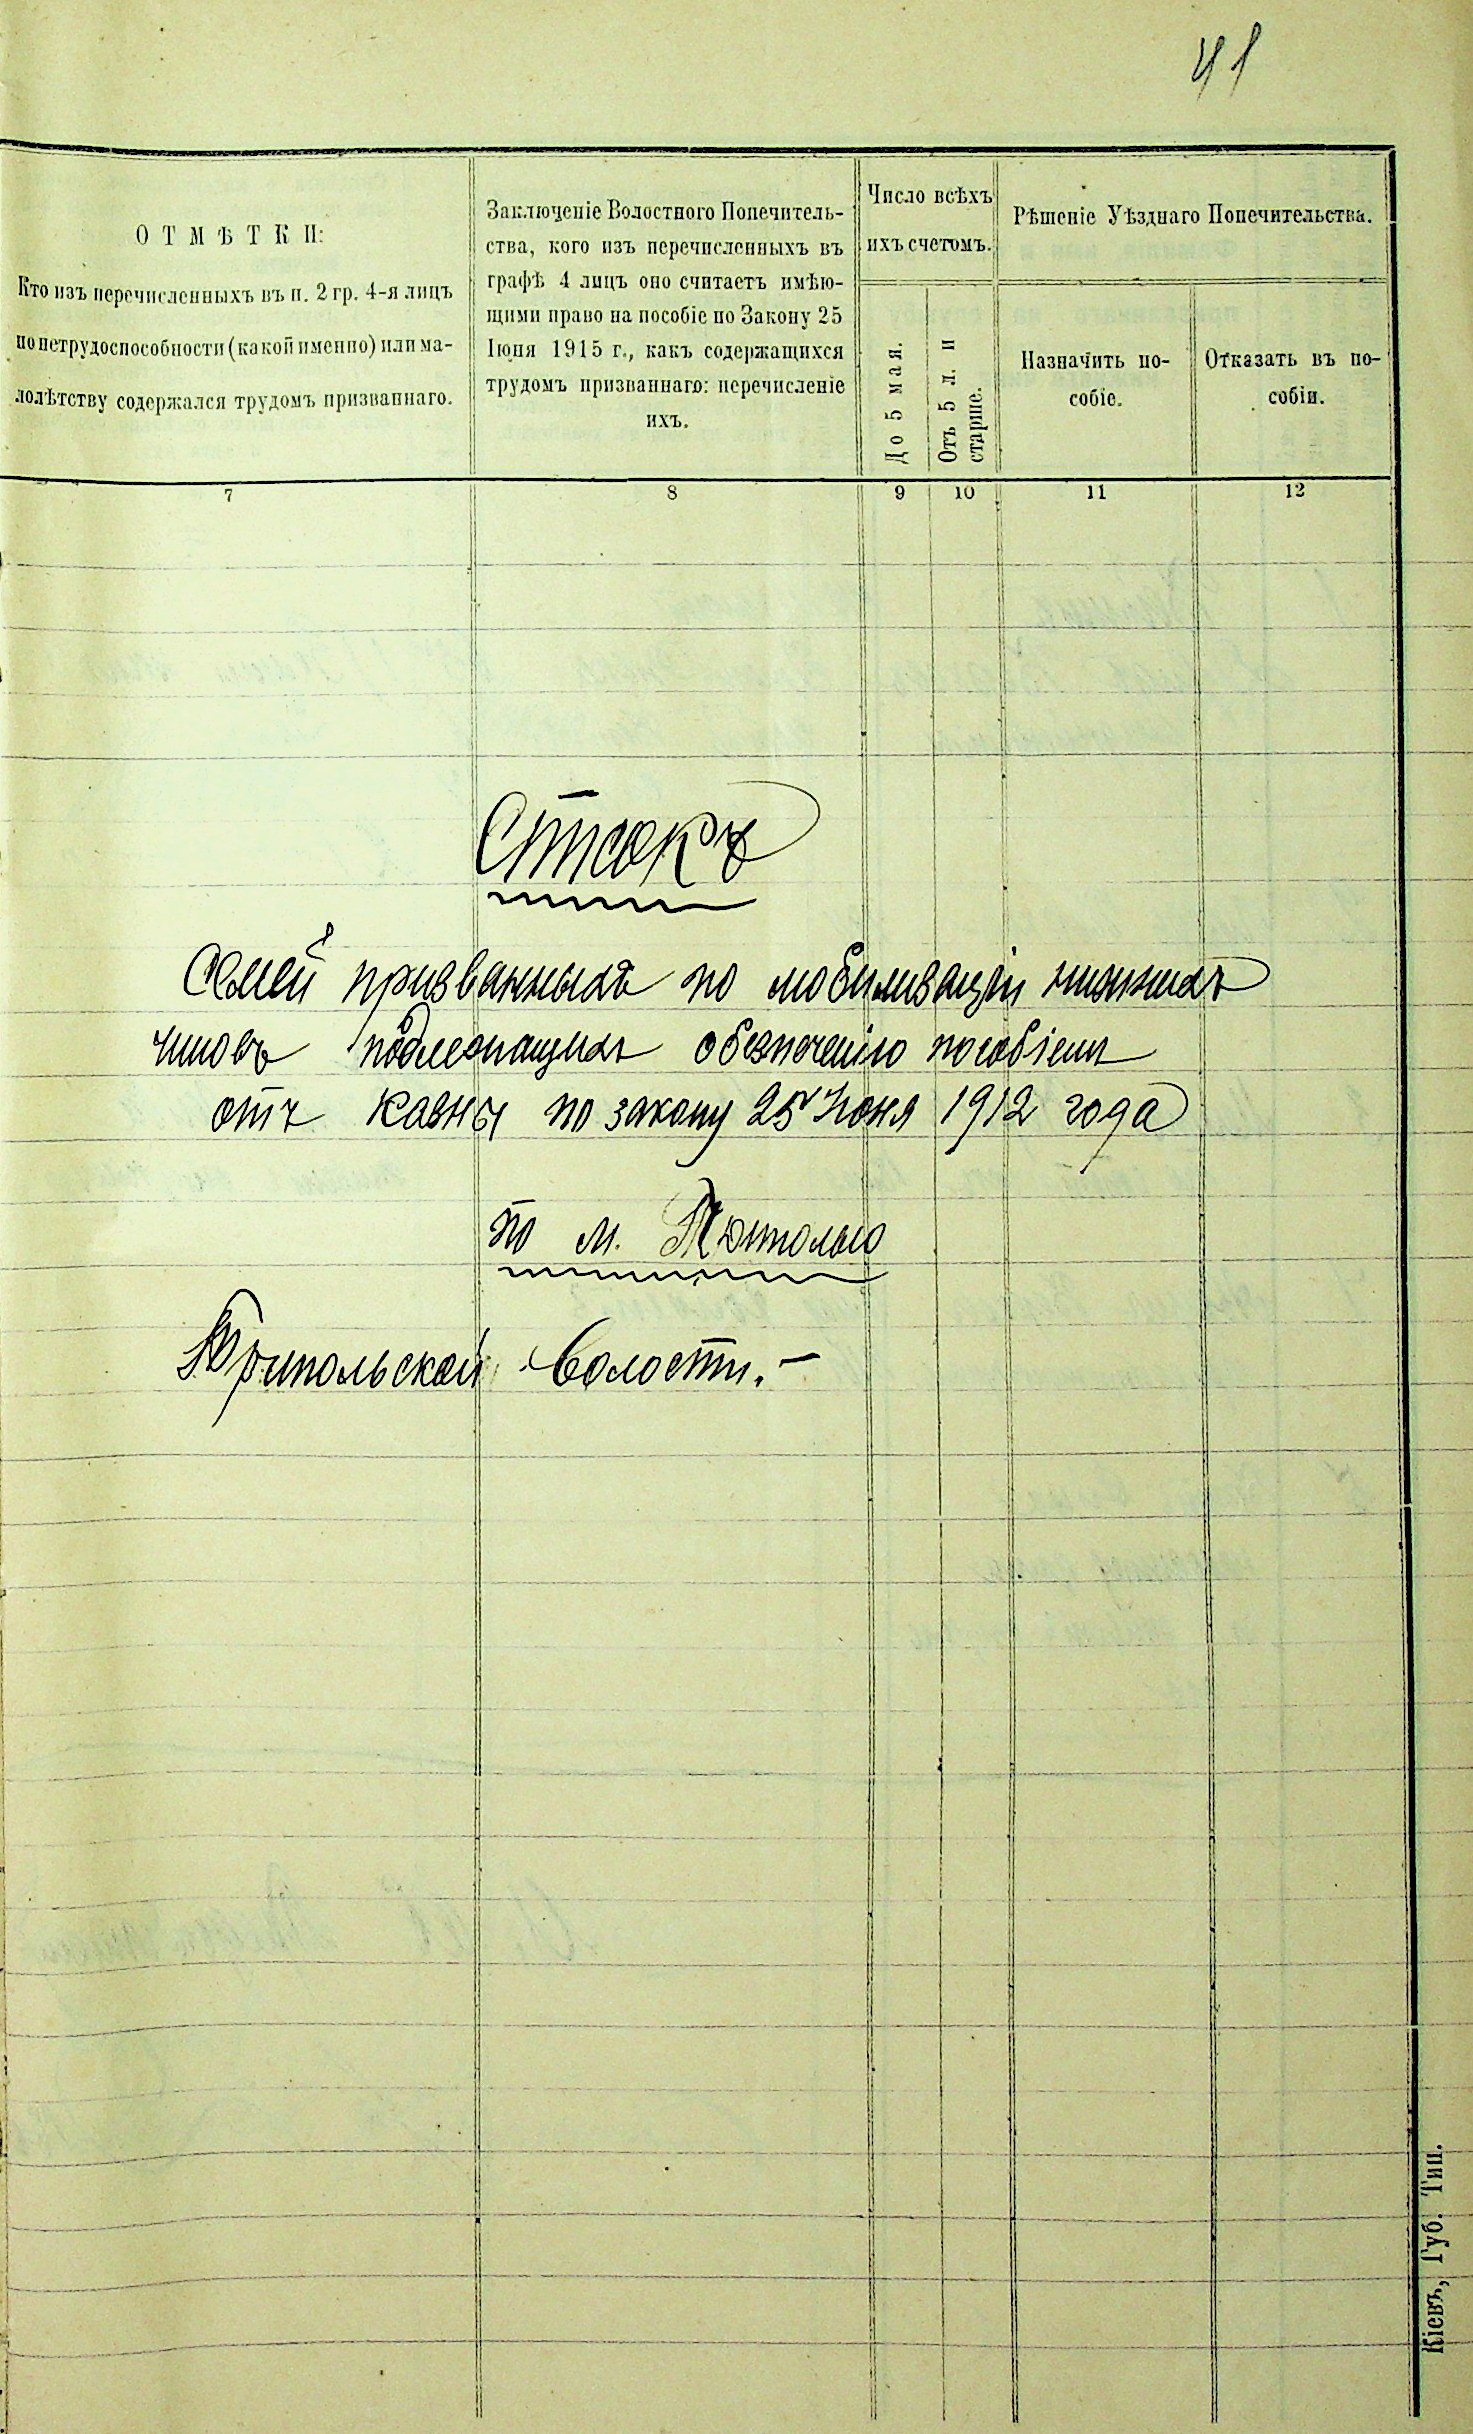 41
О Т М Ѣ Т К И:
Кто изъ перечисленныхъ въ п. 2 гр. 4-я лицъ
по нетрудоспособности (какой именно) или ма-
лолѣтству содержался трудомъ призваннаго.
Заключеніе Волостного Попечитель-
ства, кого изъ перечисленныхъ въ
графѣ 4 лицъ оно считаетъ имѣю-
щими право на пособіе по Закону 25
Іюня 1915 г., какъ содержащихся
трудомъ призваннаго: перечисленіе
ихъ.
Число всѣхъ
ихъ счетомъ.
До 5 мая.
Отъ 5 л. и
старше.
Рѣшеніе Уѣзднаго Попечительства.
Назначить по-
собіе.
Отказать въ по-
собіи.
7 8 9 10 11 12
Списокъ
Семей призванныхъ по мобилизаціи нижнихъ
чиновъ подлежащихъ обезпеченію пособіемъ
отъ казны по закону 25 Іюня 1912 года
по м. Триполью
Трипольской волости.-
Кіевъ, Губ. Тип.